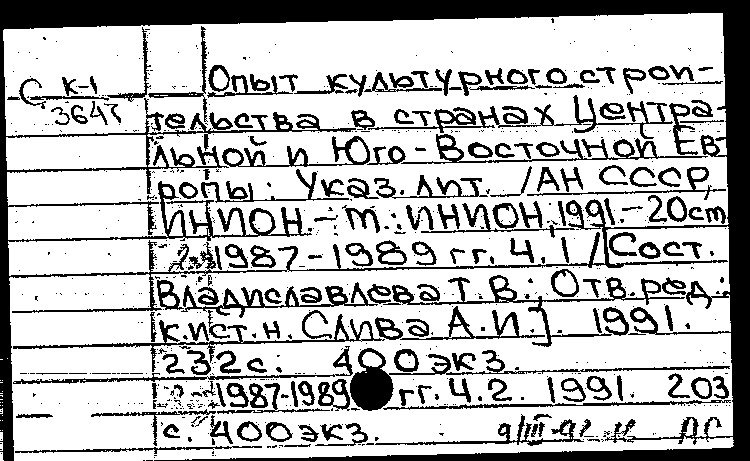 С К-1
3647
Опыт культурного строи-
тельства в странах Центра-
льной и Юго-Восточной Ев-
ропы: Указ. лит. /АН СССР,
ИНИОН.-М.:ИНИОН,1991.-20cm
1987-1989 гг. Ч.1 /[Сост.
Владиславлева Т.В.; Отв.ред.:
к.ист.н. Слива А.И.]. 1991.
232с. 400экз.
1987-1989 гг. Ч.2. 1991. 203
с. 400экз. 9/III-92